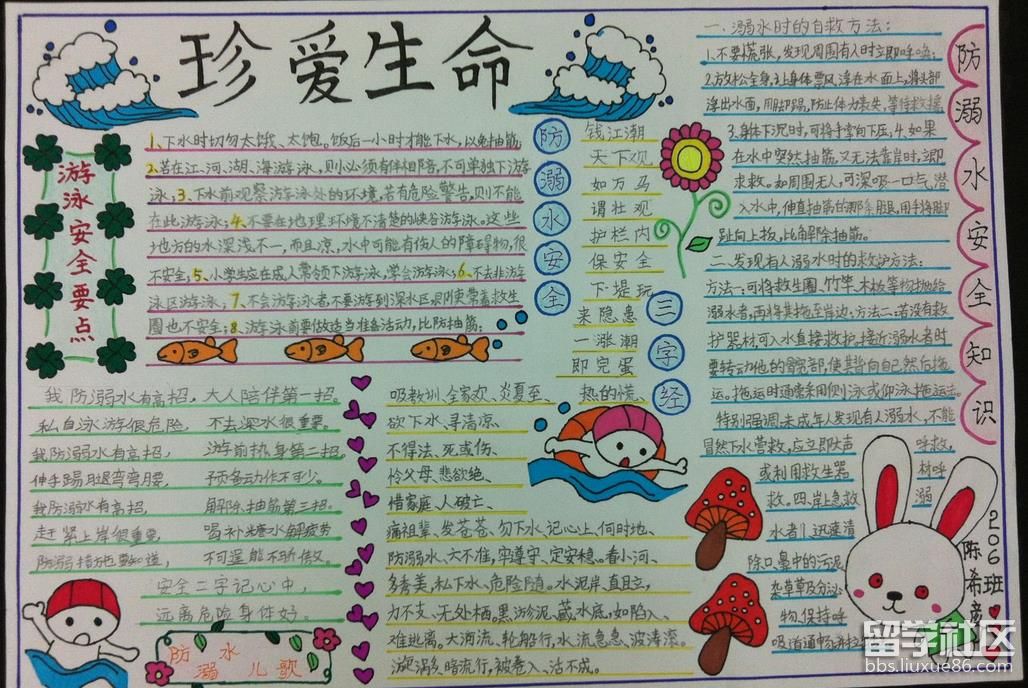 珍爱生命
游泳安全要点
1、下水时切勿太饿、太饱。饭后一小时才能下水，以免抽筋；
2、若在江、河、湖、海游泳，则必须有伴相陪，不可单独下游
泳；3、下水前观察游泳处的环境，若有危险警告，则不能
在此游泳；4、不要在地理环境不清楚的峡谷游泳。这些
地方的水深浅不一，而且凉，水中可能有伤人的障碍物，很
不安全；5、小学生应在成人带领下游泳，学会游泳；6、不去非游
泳区游泳；7、不会游泳者不要游到深水区，即使带着救生
圈也不安全；8、游泳前要做适当准备活动，以防抽筋；
防溺水安全
三字经
钱江潮
天下观
如万马
谓壮观
护栏内
保安全
下堤玩
来隐患
一涨潮
即完蛋
热的慌、
吸教训、全家欢、炎夏至、
欲下水、寻清凉、
不得法、死或伤、
怜父母、悲欲绝、
惜家庭、人破亡、
痛祖辈、发苍苍、勿下水、记心上、何时地、
防溺水、六不准，牢遵守、定安稳。看小河、
多秀美，私下水、危险随。水泥岸、直且立，
力不支、无处栖，黑淤泥、藏水底，如陷入、
难逃离。大海流、轮船行，水流急、波涛滚。
游漩涡、暗流行，被卷入、活不成。
我防溺水有高招，大人陪伴第一招。
私自泳游很危险，不去深水很重要。
我防溺水有高招，游前热身第二招。
伸手踢腿弯弯腰，预备动作不可少。
我防溺水有高招，解除抽筋第三招。
赶紧上岸很重要，喝补糖水解疲劳
防溺措施要知道，不可逞能不骄傲。
安全二字记心中，
远离危险身体好。
防水溺儿歌
防溺水安全知识
一、溺水时的自救方法：
1、不要慌张，发现周围有人时立即呼唤；
2、放松全身，让身体飘浮在水面上，将头部
浮出水面，用脚踢，防止体力丧失，等待救援
3、身体下沉时，可将手掌向下压；4、如果
在水中突然抽筋，又无法靠岸时，立即
求救。如周围无人，可深吸一口气潜
入水中，伸直抽筋的那条腿，用手将脚
趾向上扳，比解除抽筋。
二、发现有人溺水时的救护方法：
方法一：可将救生圈、竹竿、木板等物抛给
溺水者，再将其拖至岸边；方法二：若没有救
护器材，可入水直接救护，接近溺水者时
要转动他的髋部，使其背向自己然后拖
运。拖运时通常采用侧泳或仰泳拖运法。
特别强调：未成年人发现有人溺水，不能
冒然下水营救，应立即大声呼救，
或利用救生器材呼
救。四、岸上急救溺
水者：1、迅速清
除口、鼻中的污泥
杂草及分泌
物，保持呼
吸道通畅
206班
陈希
留学社区
bbs.liuxue86.com